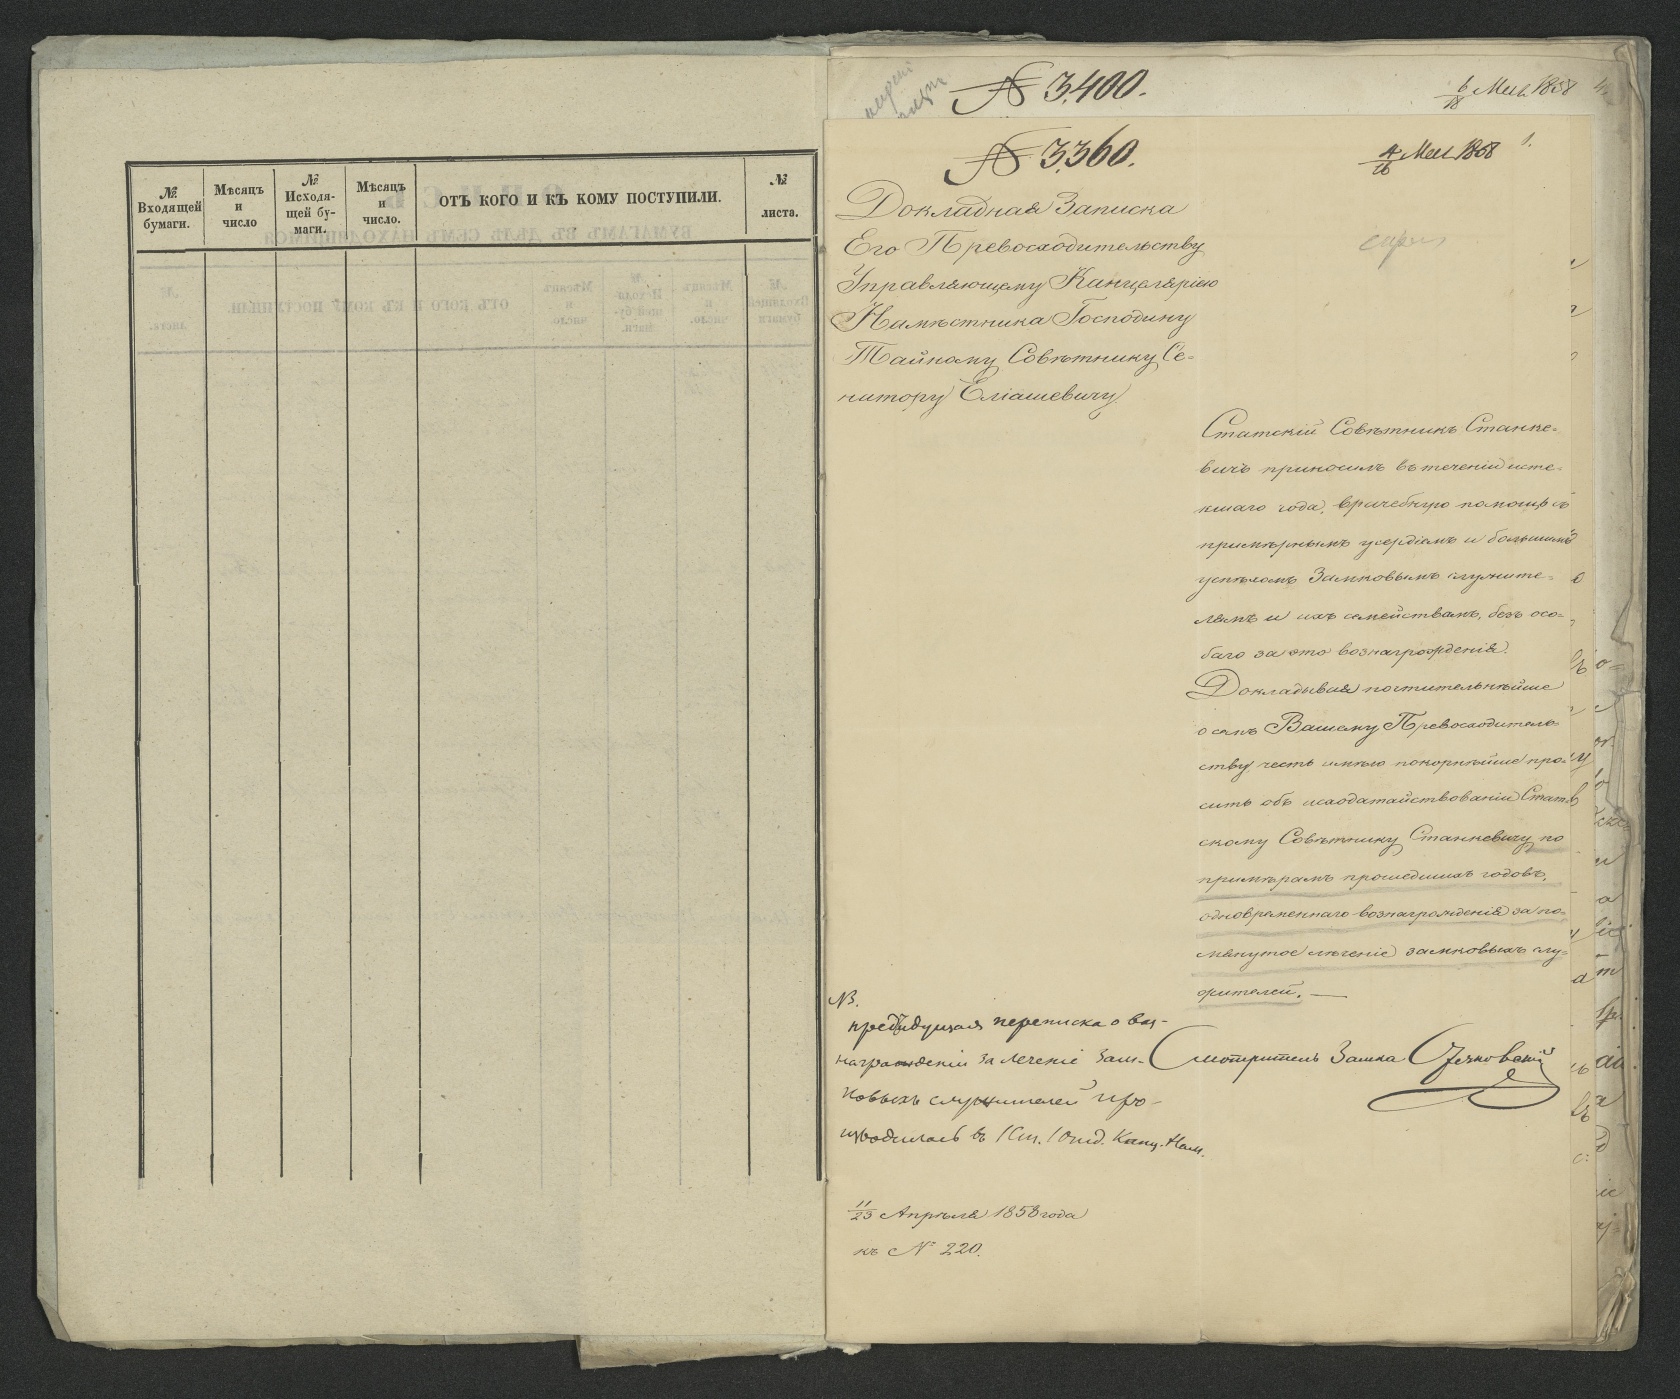 № Входящей бумаги.
Мѣсяцъ и число
№ Исходящей бумаги.
Мѣсяцъ и число.
ОТЪ КОГО И КЪ КОМУ ПОСТУПИЛИ.
№ листа.
№ 3,400.
6/18 Мая 1858
№ 3,360.
4/16 Мая 1858
1.
Докладная Записка
Его Превосходительству
Управляющему Канцеляріею
Намѣстника Господину
Тайному Совѣтнику Се-
натору Еліашевичу.
Статскій Совѣтникъ Станке-
вичъ приносилъ въ теченіи исте-
кшаго года, врачебную помощь съ
примѣрнымъ усердіемъ и большимъ
успѣхомъ Замковымъ служите-
лямъ и ихъ семействамъ, безъ осо-
баго за это вознагрожденія.
Докладывая почтительнѣйше
о семъ Вашему Превосходитель-
ству, честь имѣю покорнѣйше про-
сить объ исходатайствованіи Стат-
скому Совѣтнику Станкевичу по
примѣрамъ прошедшихъ годовъ,
одновременнаго вознагрожденія за по-
мянутое лѣченіе замковыхъ слу-
жителей. —
Смотритель Замка
NB.
предъидущая переписка о воз-
награжденіи за леченіе Зам-
ковыхъ служителей про-
изводилась въ Канц. Нам.
11/23 Апрѣля 1858 года
къ № 220.